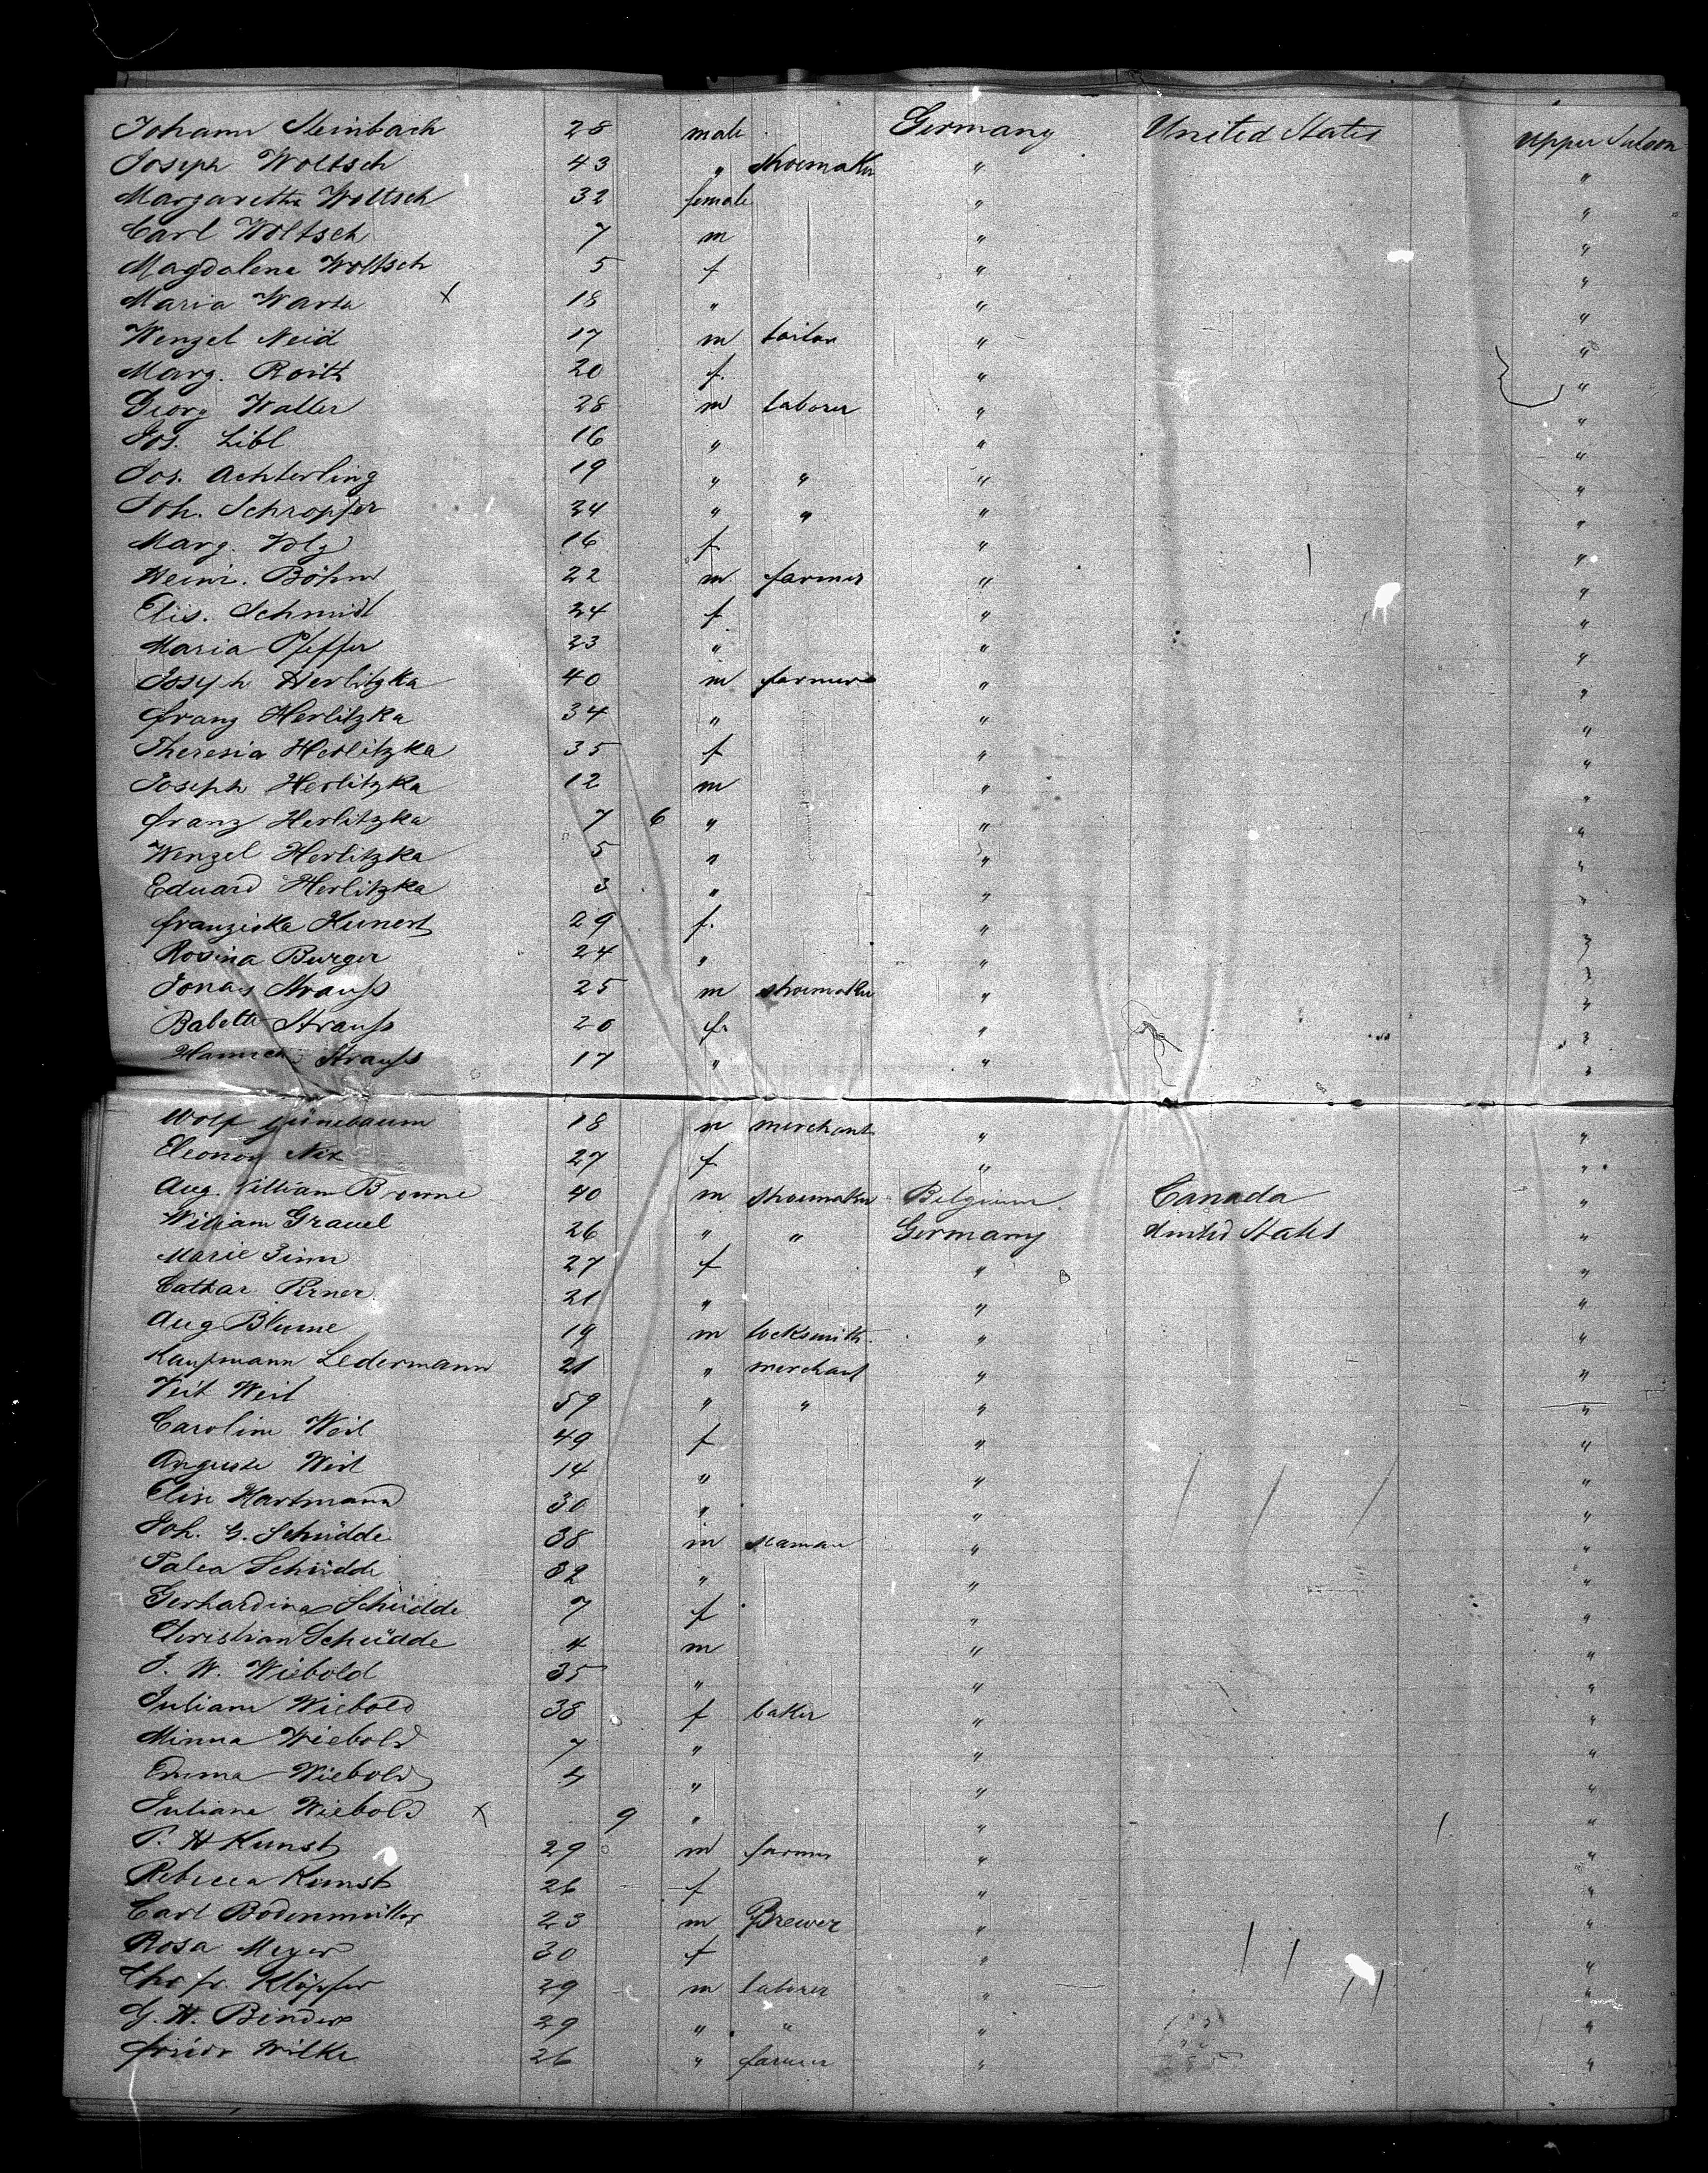 Johann Steinbach 28 male Germany United States Upper Saloon
Joseph Woltsch 43 " shoemaker " "
Margaretha Woltsch 32 female " "
Carl Woltsch 7 m " "
Magdalena Woltsch 5 f " "
Maria Warta x 18 " " "
Wenzel Neid 17 m tailor " "
Marg. Roith 20 f. " "
Georg Waller 28 m laborer " "
Jos. Libl 16 " " "
Jos. Achterling 19 " " " "
Joh. Schropfer 24 " " " "
Marg. 16 f " "
Heinr. Böhm 22 m farmer " "
Elis. Schmidt 24 f " "
Maria Pfeffer 23 " " "
Joseph Herlitzka 40 m farmer " "
franz Herlitzka 34 " " "
Theresia Herlitzka 35 f " "
Joseph Herlitzka 12 m " "
franz Herlitzka 7 6 " " "
Wenzel Herlitzka 5 " " "
Eduard Herlitzka 3 " " "
franziska Kunert 29 f. " "
Rosina Burger 24 " " "
Jonas Strauss 25 m shoemaker " "
Babette Strauss 20 f. " "
Strauss 17 " " "
Wolf Grünebaum 18 m merchant " "
Eleonor Nix 27 f " "
Aug. William Browne 40 m shoemaker Belgium Canada "
William Grauel 26 " " Germany United States "
Marie Zinn 27 f " "
Cathar Perner 21 " " "
Aug Blume 19 m locksmith " "
Kaufmann Ledermann 21 " merchant " "
Veit Weil 59 " " " "
Caroline Weil 49 f " "
Auguste Weil 14 " " "
Elise Hartmann 30 " " "
Joh. G. Schüdde 38 m seaman " "
Talea Schüdde 32 " " "
Gerhardina Schüdde 7 f " "
Christian Schüdde 4 m " "
J. W. Wiebold 35 " " "
Juliane Wiebold 38 f baker " "
Minna Wiebold 7 " " "
Emma Wiebold 4 " " "
Juliane Wiebold x 9 " " "
P. H Kunst 29 m farmer " "
Rebecca Kunst 26 f " "
Carl Bodenmüller 23 m Brewer " "
Rosa Meyer 30 f " "
Chr. fr. Klöpfer 29 m laborer " "
G. H. Binder 29 " " " "
friedr Wilke 26 " farmer " "